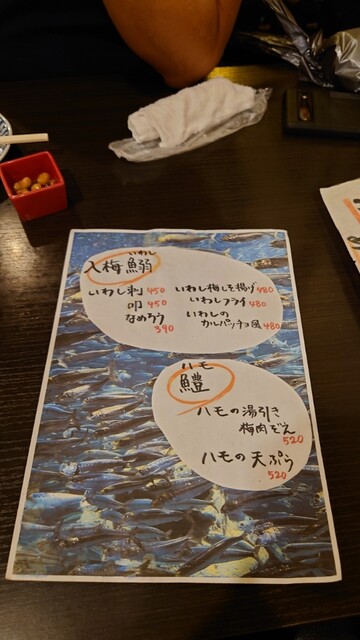 いわし
入梅鰯
いわし刺 450
叩 450
なめろう 390
いわし梅しそ揚げ 480
いわしフライ 480
いわしの
カルパッチョ風 480
ハモ
鱧
ハモの湯引き
梅肉ぞえ 520
ハモの天ぷら 520